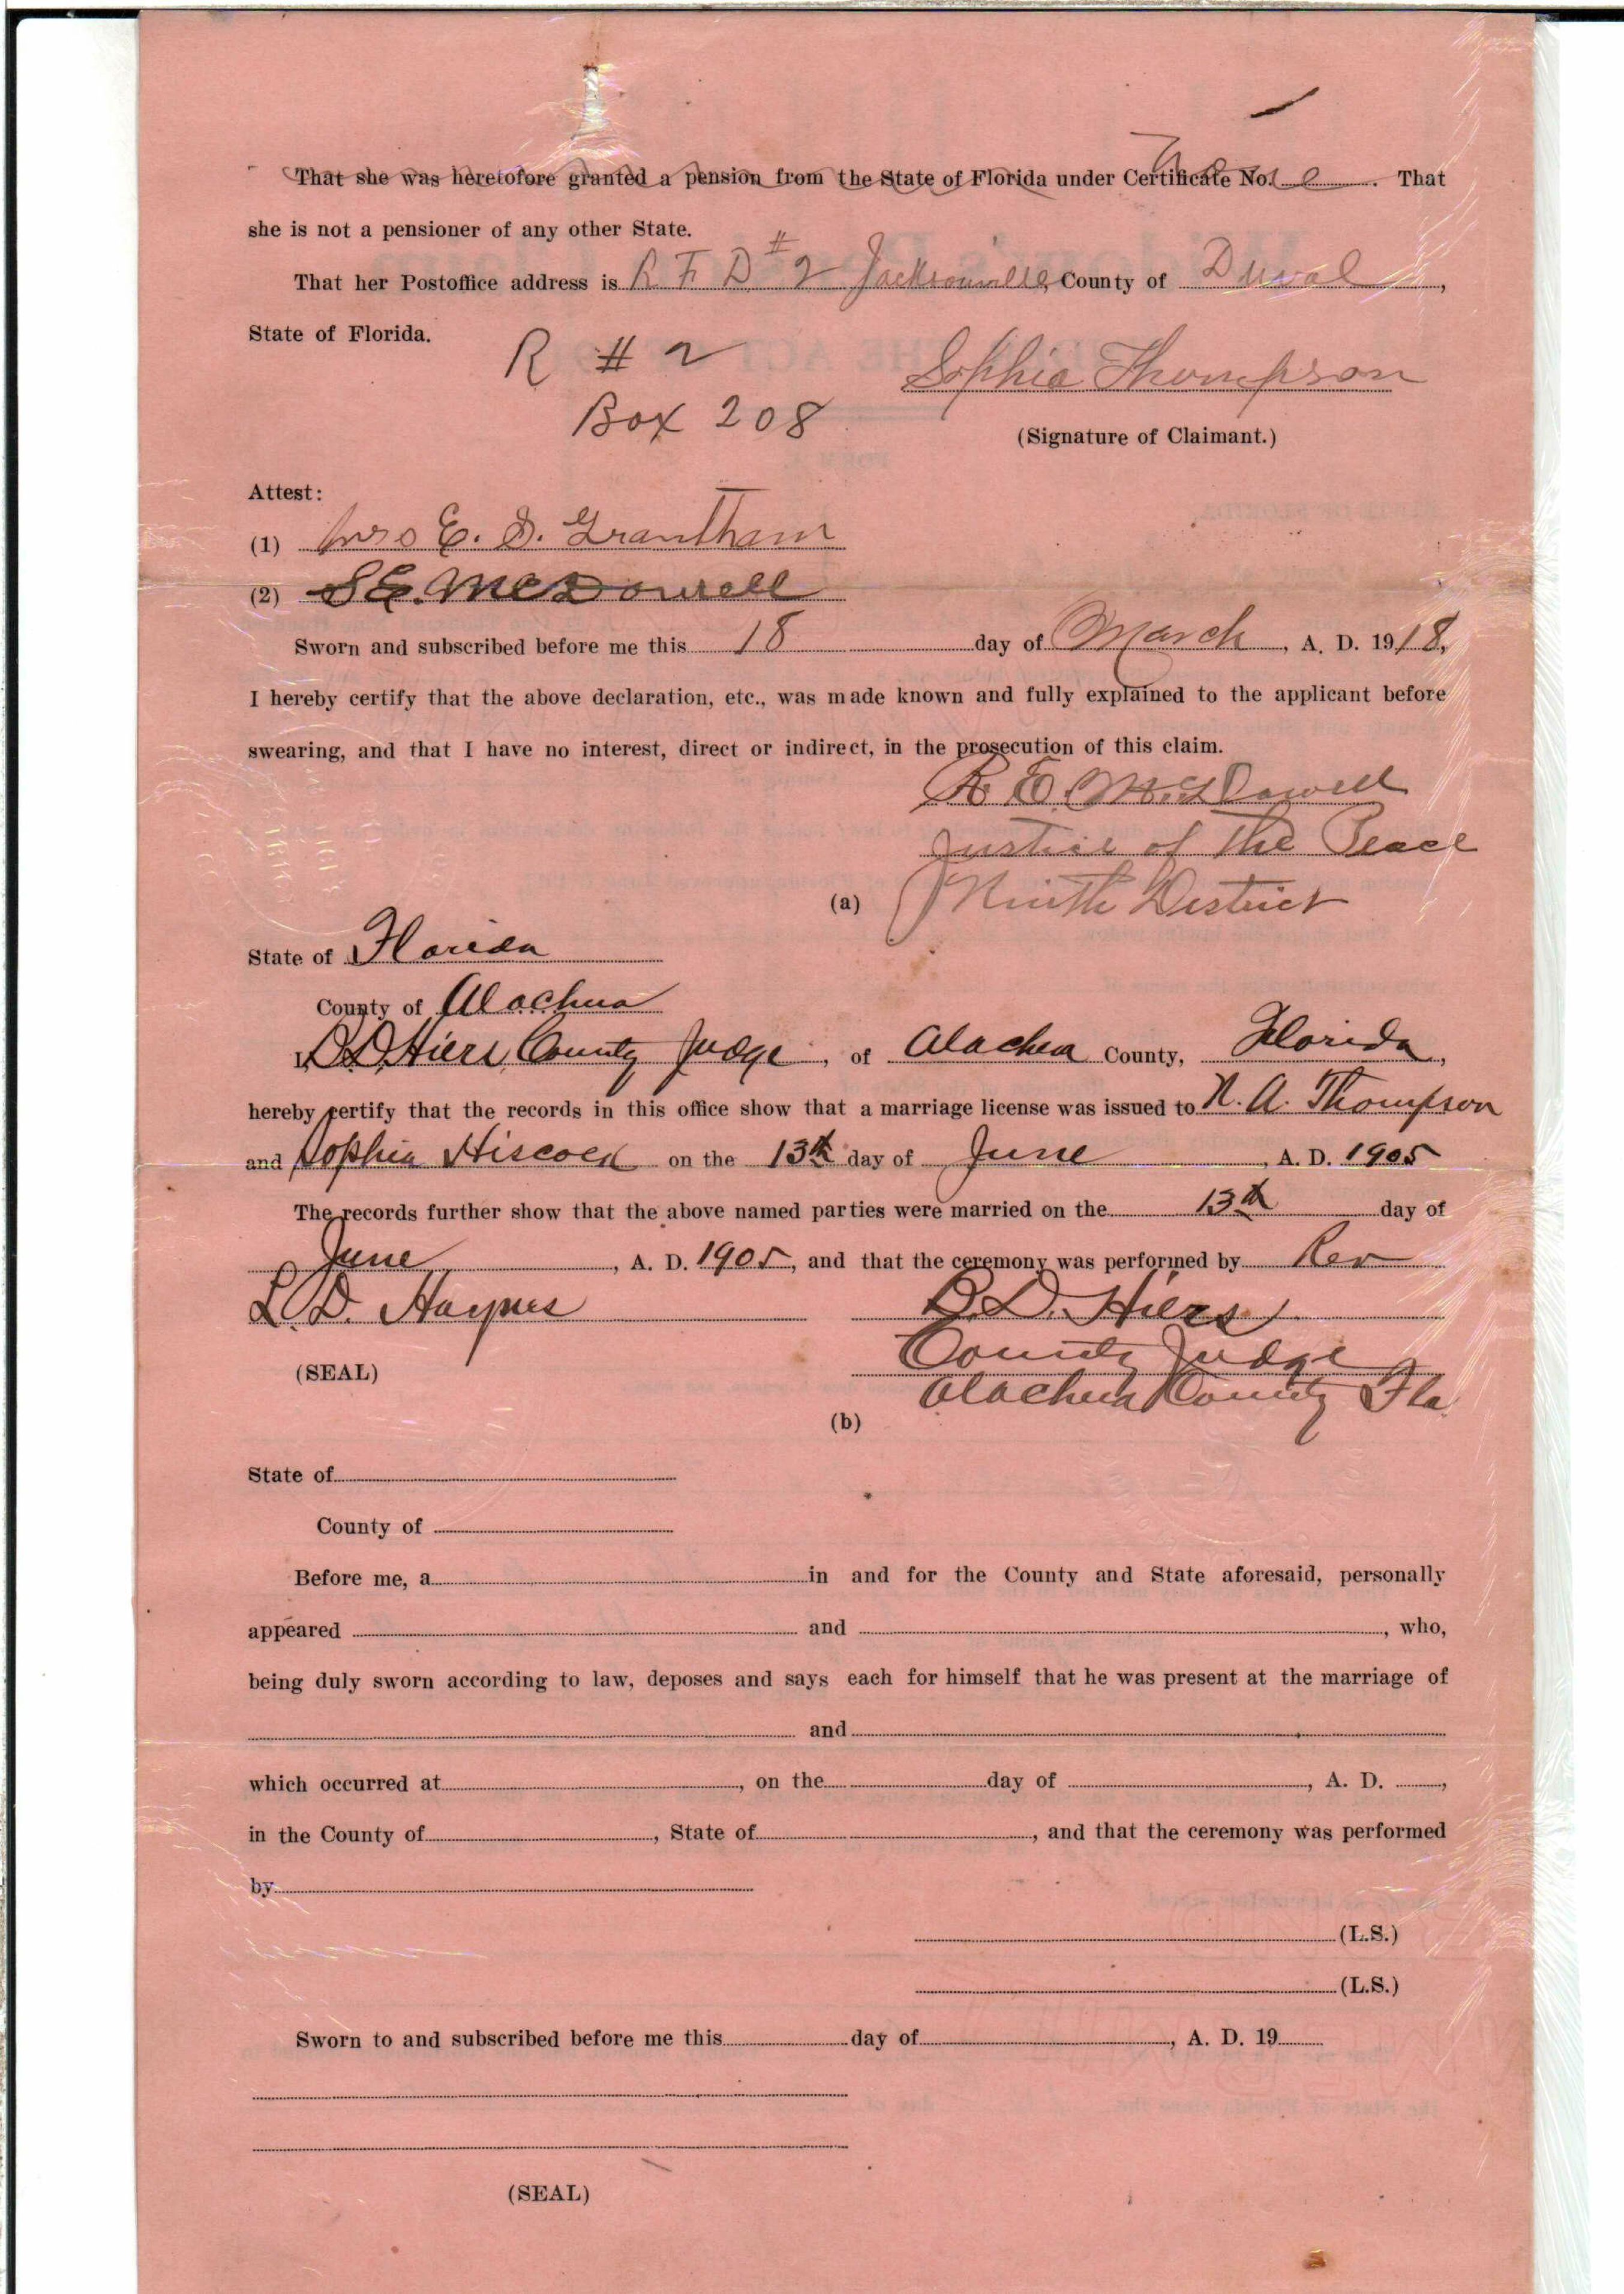 That she was heretofore granted a pension from the State of Florida under Certificate No. None. That
she is not a pensioner of any other State.
That her Postoffice address is R F D #2 Jacksonville, County of Duval,
State of Florida.
R # 2
Box 208
Sophia Thompson
(Signature of Claimant.)
Attest:
(1) Mrs E. S. Grantham
(2) S E. McDowell
Sworn and subscribed before me this 18 day of March, A. D. 1918,
I hereby certify that the above declaration, etc., was made known and fully explained to the applicant before
swearing, and that I have no interest, direct or indirect, in the prosecution of this claim.
R E. McDowell
Justice of the Peace
(a) Ninth District
State of Florida
County of Alachua
I, B. D. Hiers, County Judge, of Alachua County, Florida,
hereby certify that the records in this office show that a marriage license was issued to N. A. Thompson
and Sophia Hiscock on the 13th day of June, A. D. 1905
The records further show that the above named parties were married on the 13th day of
June, A. D. 1905, and that the ceremony was performed by Rev
L. D. Haynes B. D. Hiers
County Judge
(SEAL)
Alachua County Fla
(b)
State of
County of
Before me, a in and for the County and State aforesaid, personally
appeared and , who,
being duly sworn according to law, deposes and says each for himself that he was present at the marriage of
and
which occurred at , on the day of , A. D. ,
in the County of , State of , and that the ceremony was performed
by
(L.S.)
(L.S.)
Sworn to and subscribed before me this day of , A. D. 19
(SEAL)